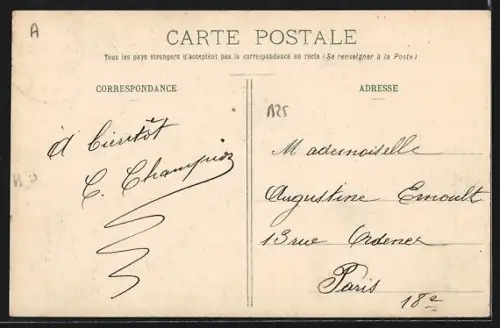 A
CARTE POSTALE
Tous les pays étrangers n'acceptent pas la correspondance au recto (Se renseigner à la Poste)
CORRESPONDANCE
ADRESSE
à bientôt
C. Champion
Mademoiselle
Augustine Ernoult
13 rue Ordener
Paris
18e